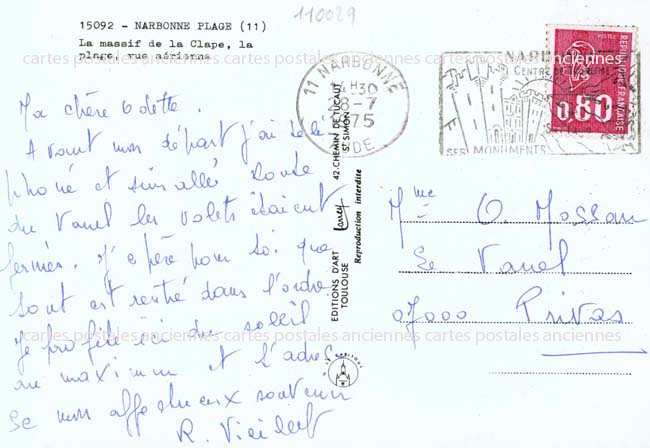 110029
15092 - NARBONNE PLAGE (11)
La massif de la Clape, la
plage, vue aérienne
cartes postales anciennes cartes postales anciennes cartes postales anciennes
11 NARBONNE
H30
28-7
1975
AUDE
NARBONNE
CENTRE DE TOURISME
SES MONUMENTS
POSTES
REPUBLIQUE FRANÇAISE
0,80
Ma chère Odette.
Avant mon départ j'ai télé
phoné et suis allé route
du Vanel les volets étaient
fermés. J'espère pour toi que
tout est rentré dans l'ordre
Je profite ici du soleil
au maximum et t'adresse
mon affectueux souvenir
R.
EDITIONS D'ART Larrey
TOULOUSE
42, CHEMIN DE TUCAUT
ST SIMON
Reproduction interdite
Mme O. Mossan
Le Vanel
07000 Privas
cartes postales anciennes cartes postales anciennes cartes postales anciennes